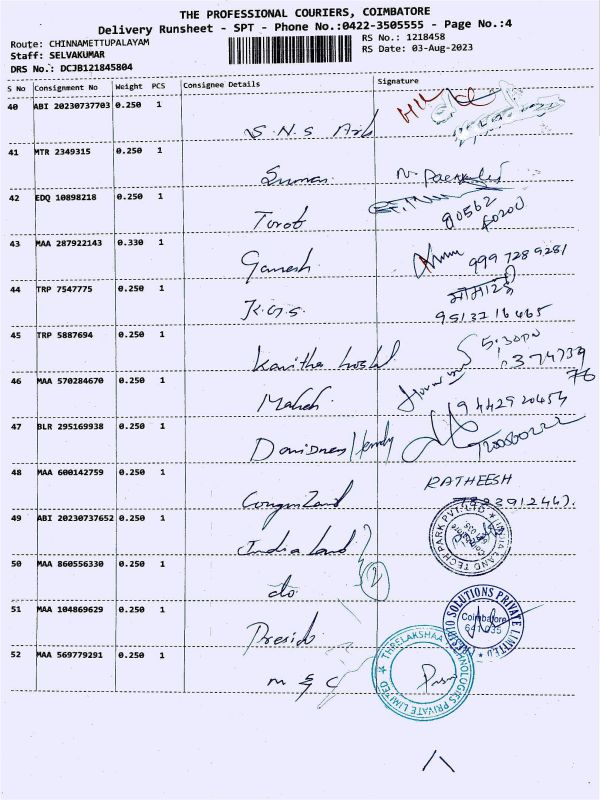 THE PROFESSIONAL COURIERS, COIMBATORE
Delivery Runsheet - SPT - Phone No.:0422-3505555 - Page No.:4
Route: CHINNAMETTUPALAYAM
Staff: SELVAKUMAR
DRS No.: DCJB121845804
RS No.: 1218458
RS Date: 03-Aug-2023
S No Consignment No Weight PCS Consignee Details Signature
40 ABI 20230737703 0.250 1
S.N.S
41 MTR 2349315 0.250 1
Suman
42 EDQ 10898218 0.250 1
90562
60200
43 MAA 287922143 0.330 1
Ganesh 999 728 9281
44 TRP 7547775 0.250 1
K.G.S.
9513716465
45 TRP 5887694 0.250 1
5:30pm
Kavitha hostel
46 MAA 570284670 0.250 1
76
Mahesh 9442920454
47 BLR 295169938 0.250 1
48 MAA 600142759 0.250 1
RATHEESH
49 ABI 20230737652 0.250 1
India Land
INDIA LAND TECH PARK PVT. LTD.
50 MAA 860556330 0.250 1
do 2
51 MAA 104869629 0.250 1
Presido
PRESIDIO SOLUTIONS PRIVATE LIMITED
Coimbatore
641 035
52 MAA 569779291 0.250 1
THREELAKSHAA TECHNOLOGIES PRIVATE LIMITED